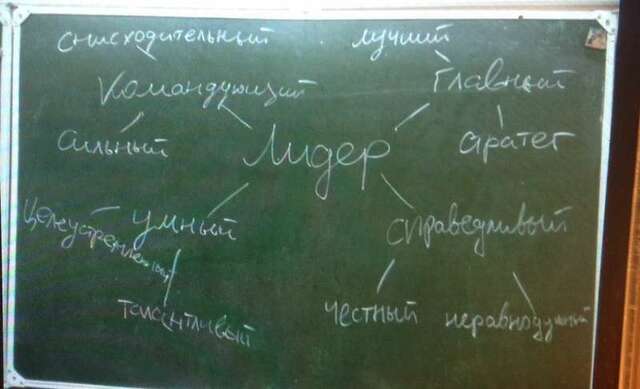 снисходительный лучший
командующий главный
сильный Лидер стратег
целеустремленный умный справедливый
талантливый честный неравнодушный